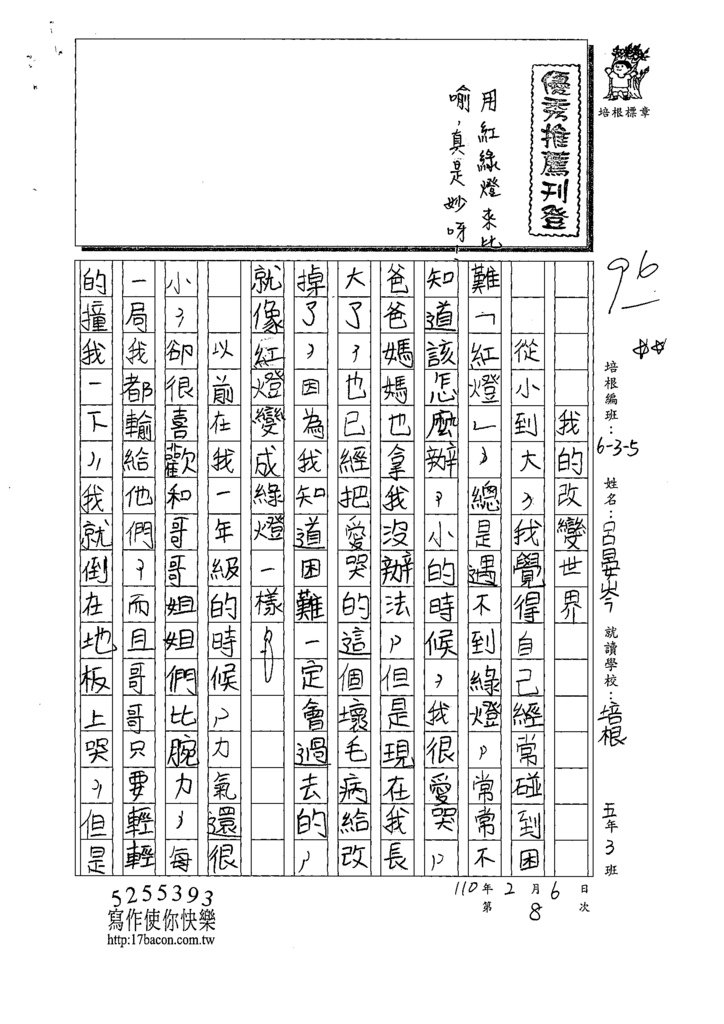 培根標章
優秀推薦刊登
用紅綠燈來比
喻,真是妙呀!
96
培根編班:6-3-5 姓名:呂晏岑 就讀學校:培根 五年3班
110年2月6日
第8次
我的改變世界
從小到大,我覺得自己經常碰到困
難「紅燈」,總是遇不到綠燈,常常不
知道該怎麼辦,小的時候,我很愛哭,
爸爸媽媽也拿我沒辦法,但是現在我長
大了,也已經把愛哭的這個壞毛病給改
掉了,因為我知道困難一定會過去的,
就像紅燈變成綠燈一樣。
以前在我一年級的時候,力氣還很
小,卻很喜歡和哥哥姐姐們比腕力,每
一局我都輸給他們,而且哥哥只要輕輕
的撞我一下,我就倒在地板上哭,但是
5255393
寫作使你快樂
http:17bacon.com.tw